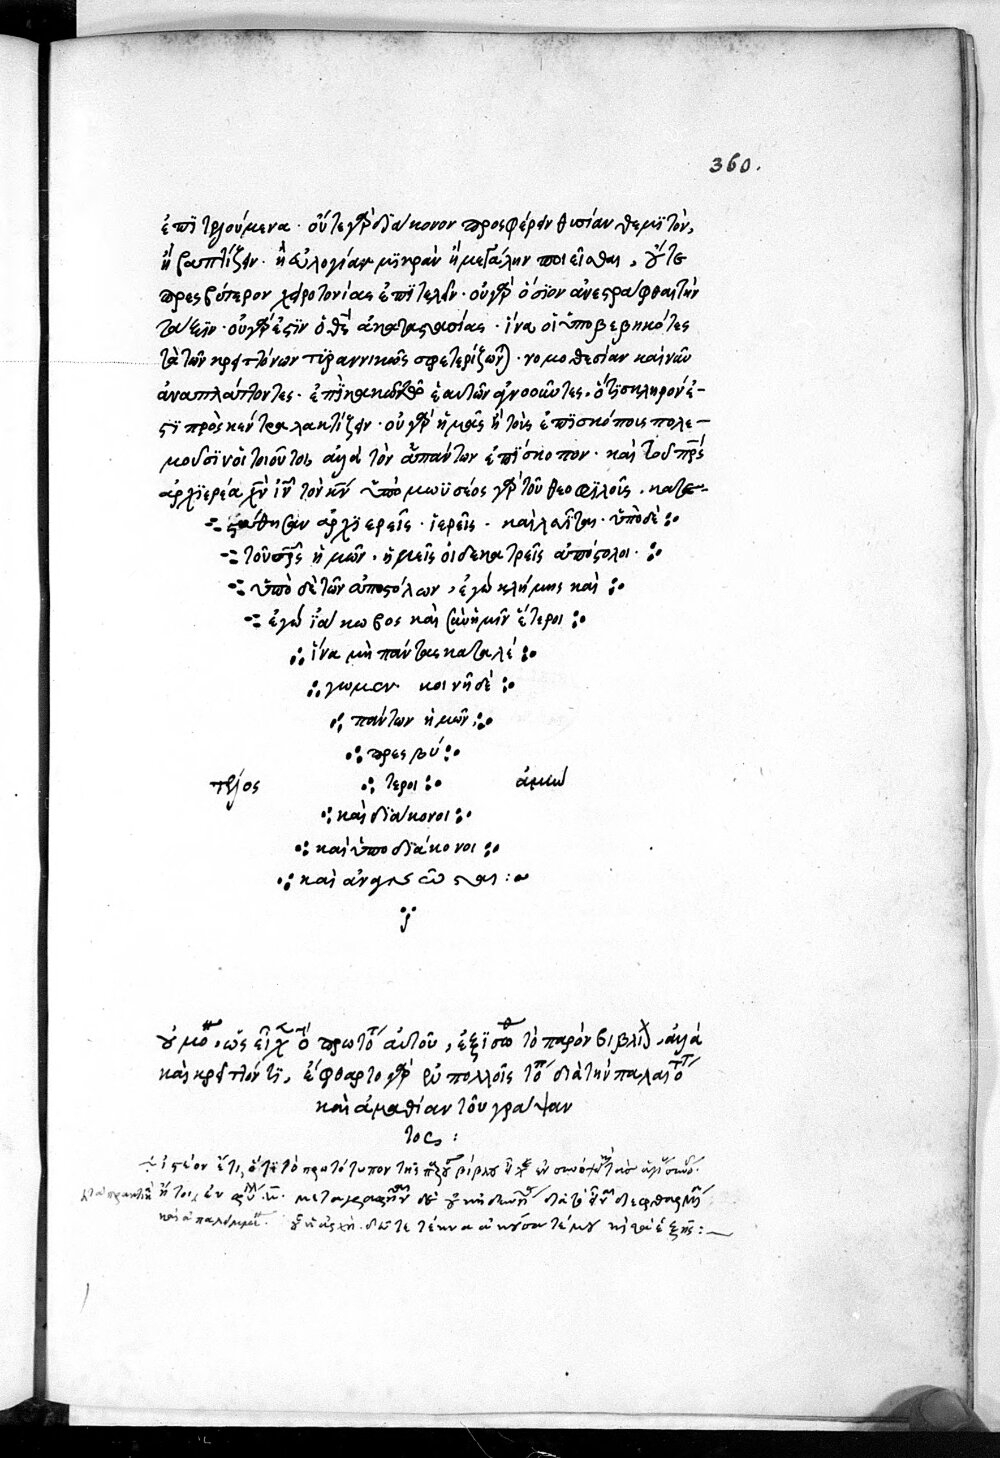 360.
ἐπϊτελούμενα · οὔτε γὰρ διάκονον προσφέρειν θυσίαν θεμϊτὸν,
ἢ βαπτίζειν · ἢ εὐλογίαν μϊκρὰν ἢ μεγάλην ποιεῖσθαι, οὔτε
πρεσβύτερον χειροτονίας ἐπϊτελεῖν · οὐ γὰρ ὅσϊον ἀνεστράφθαι τὴν
τάξϊν · οὐ γάρ ἐστϊν ὁ θς ἀκαταστασίας · ἵνα οἱ ὑποβεβηκότες
τὰ τῶν κρειττόνων τϋραννικῶς σφετερίζωνται · νομοθεσίαν καινὴν
ἀναπλάττοντες · ἐπϊ κακῷ τῷ ἑαυτῶν ἀγνοοῦντες · ὅτϊ σκληρόν ἐ-
στϊ πρὸς κέντρα λακτίζειν · οὐ γὰρ ἡμᾶς ἢ τοὺς ἐπϊσκόπους πολε-
μοῦσϊν οἱ τοιοῦτοι, ἀλλὰ τὸν ἁπάντων ἐπϊσκοπον · καὶ τοῦ πρς
ἀρχϊερέα χν ιν τὸν κν ὑπὸ μωϋσέος γὰρ τοῦ θεοφϊλοῦς · κατε-
στάθησαν ἀρχϊερεῖς · ἱερεῖς · καὶ λευῖται · ὑπὸ δὲ
τοῦ σρς ἡμῶν · ἡμεῖς οἱ δεκατρεῖς ἀπόστολοι ·
ὑπὸ δὲ τῶν ἀποστόλων, ἐγὼ κλήμης καὶ
ἐγὼ ϊάκωβος καὶ σὺν ἡμῖν ἕτεροι
ἵνα μὴ πάντας καταλέ
γωμεν · κοινῆ δὲ
πάντων ἡμῶν
πρεσβύ
τέλος τεροι ἀμήν
καὶ δϊάκονοι
καὶ ὑποδϊάκονοι
καὶ ἀναγνῶσται :
ὡς εἶχε τὸ πρωτότυπον αὐτοῦ, τὸ παρὸν βιβλίον · ἀλλὰ
καὶ κρεῖττόν τϊ, ἔφθαρτο γὰρ ἐν πολλοῖς τόποις διὰ τὴν παλαιότητα
καὶ ἀμαθίαν τοῦ γράψαν
τος :
ἰστέον ἔτι, ὅτϊ τὸ πρωτότυπον τῆς
τέκνα ἀκούσατέ μου καὶ τὰ ἑξῆς :